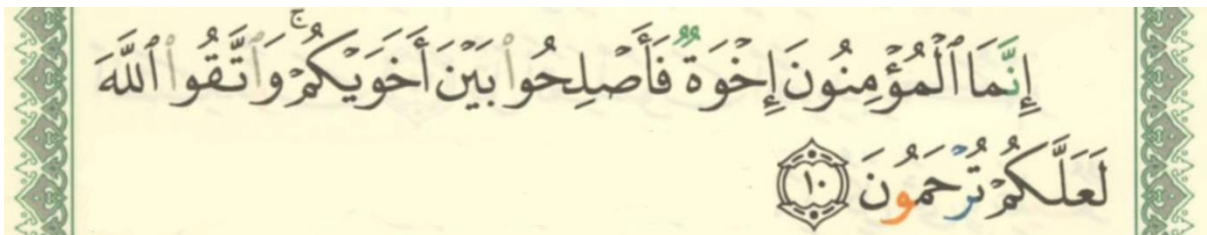 إِنَّمَا ٱلْمُؤْمِنُونَ إِخْوَةٌ فَأَصْلِحُوا۟ بَيْنَ أَخَوَيْكُمْ ۚ وَٱتَّقُوا۟ ٱللَّهَ
لَعَلَّكُمْ تُرْحَمُونَ ١٠